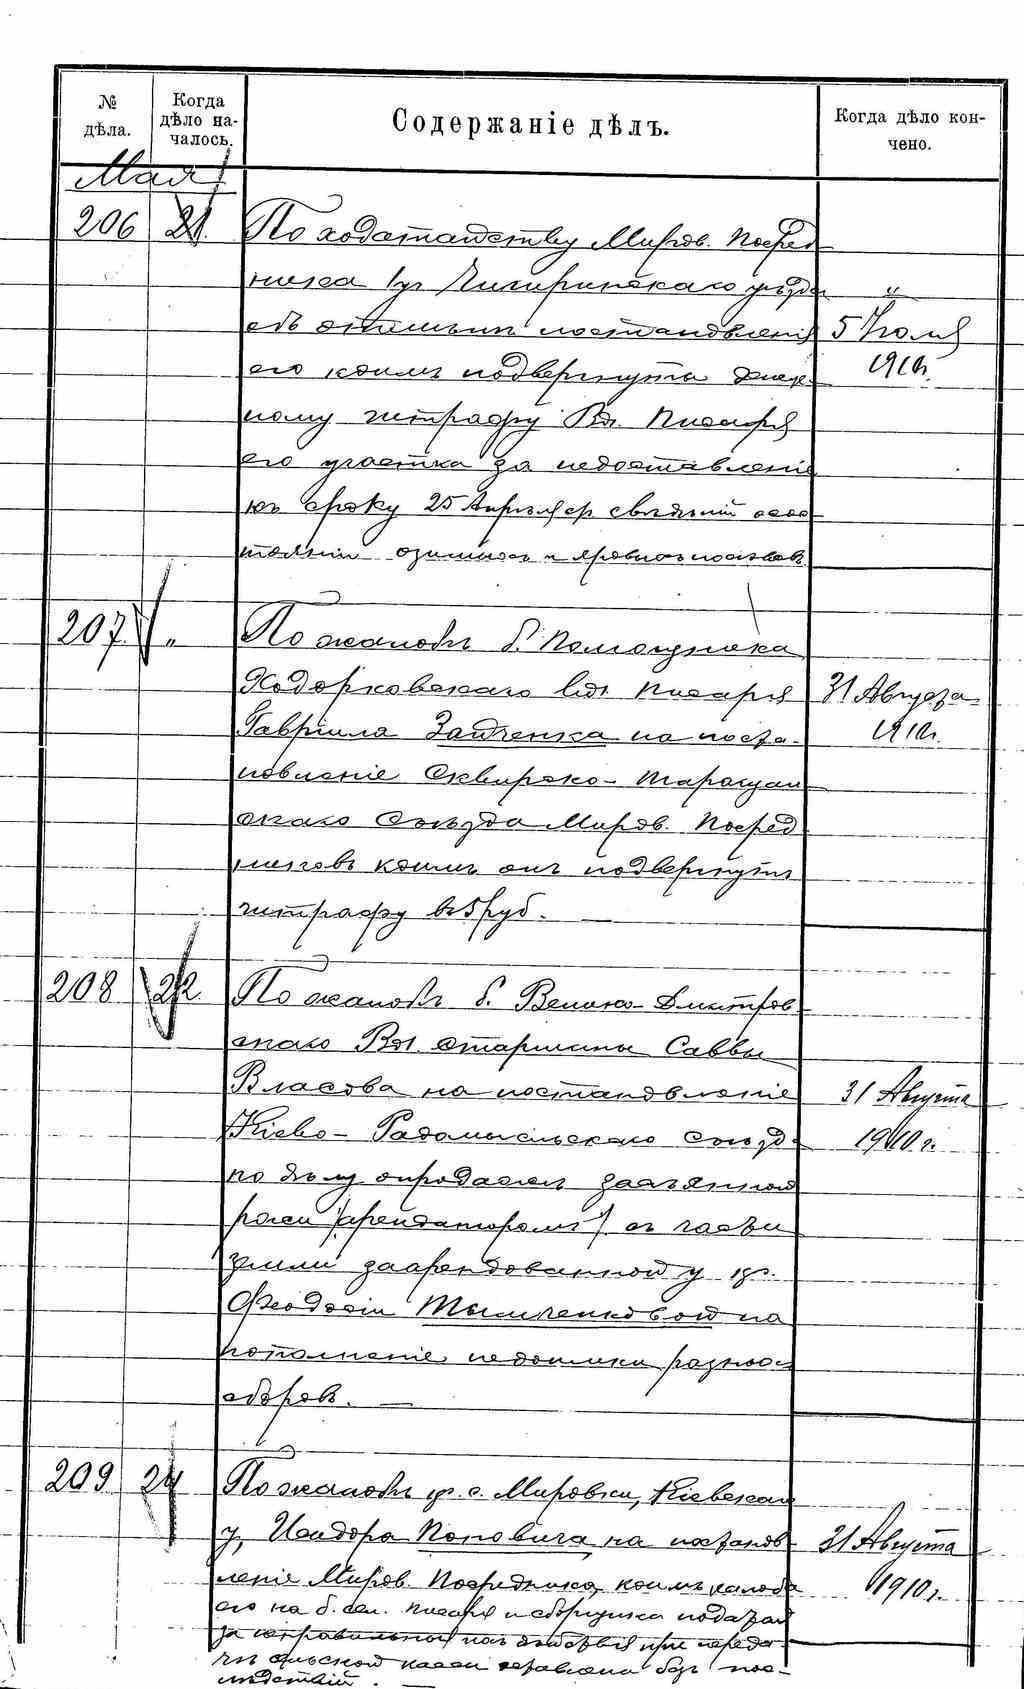 №
дѣла.
Когда
дѣло на-
чалось.
Содержаніе дѣлъ.
Когда дѣло кон-
чено.
Мая
206 21.
По ходатайству Миров. Посред
ника 1 уч Чигиринскаго уѣзда
объ отмѣнѣ постановленія
его коимъ подвергнуты денеж-
ному штрафу Вол. Писаря
его участка за недоставленіе
къ сроку 25 Апрѣля свѣдѣній о сос-
тояніи озимыхъ и яровыхъ посѣвовъ
"
5 Іюля
1910г.
207. "
По жалобѣ б. Помощника
Ходорковскаго вол. писаря
Гавріила Зайченка на поста-
новленіе Сквирско-Таращан
скаго Съѣзда Миров. Посред
никовъ коимъ онъ подвергнутъ
штрафу въ 5 руб. —
31 Августа
1910г.
208 22.
По жалобѣ б. Велико-Дмитров
скаго Вол. старшины Саввы
Власова на постановленіе
Кіево-Радомысльскаго съѣзда
по дѣлу о продажѣ засѣянной
ржи /арендаторомъ/ съ части
земли заарендованной у кр.
Феодосіи Тымченковой на
пополненіе недоимки разныхъ
сборовъ. —
31 Августа
1910 г.
209 24
По жалобѣ кр. с. Мировки, Кіевскаго
у, Исидора Поповича, на постанов
леніе Миров. Посредника, коимъ жалоба
его на б. сел. писаря и сборщика податей
за неправильныя ихъ дѣйствія при переда
чѣ сельской кассы оставлена безъ пос-
лѣдствій. —
31 Августа
1910 г.